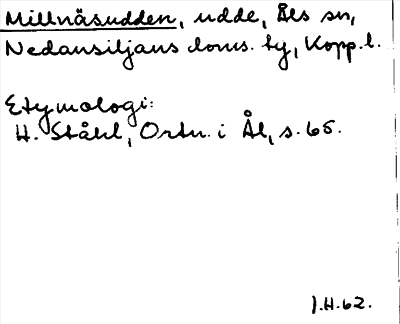 Millnäsudden, udde, Åls sn,
Nedansiljans doms. tg, Kopp. l.
Etymologi:
H. Ståhl, Ortn. i Ål, s. 65.
J.H.62.